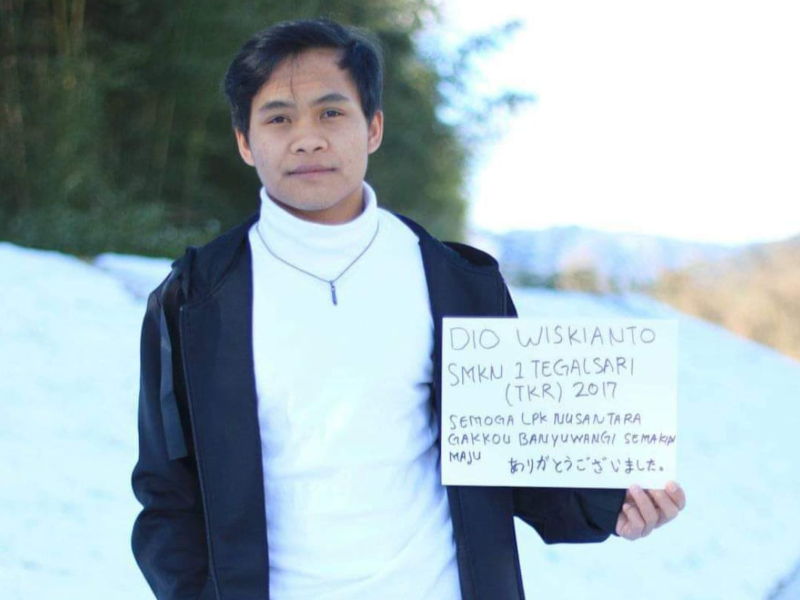 DIO WISKIANTO
SMKN 1 TEGALSARI
(TKR) 2017
SEMOGA LPK NUSANTARA
GAKKOU BANYUWANGI SEMAKIN
MAJU
ありがとうございました。